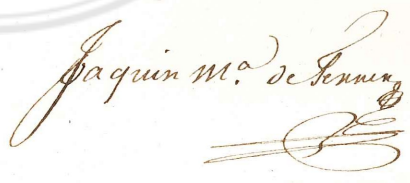 Joaquin M.ª de Ferrer